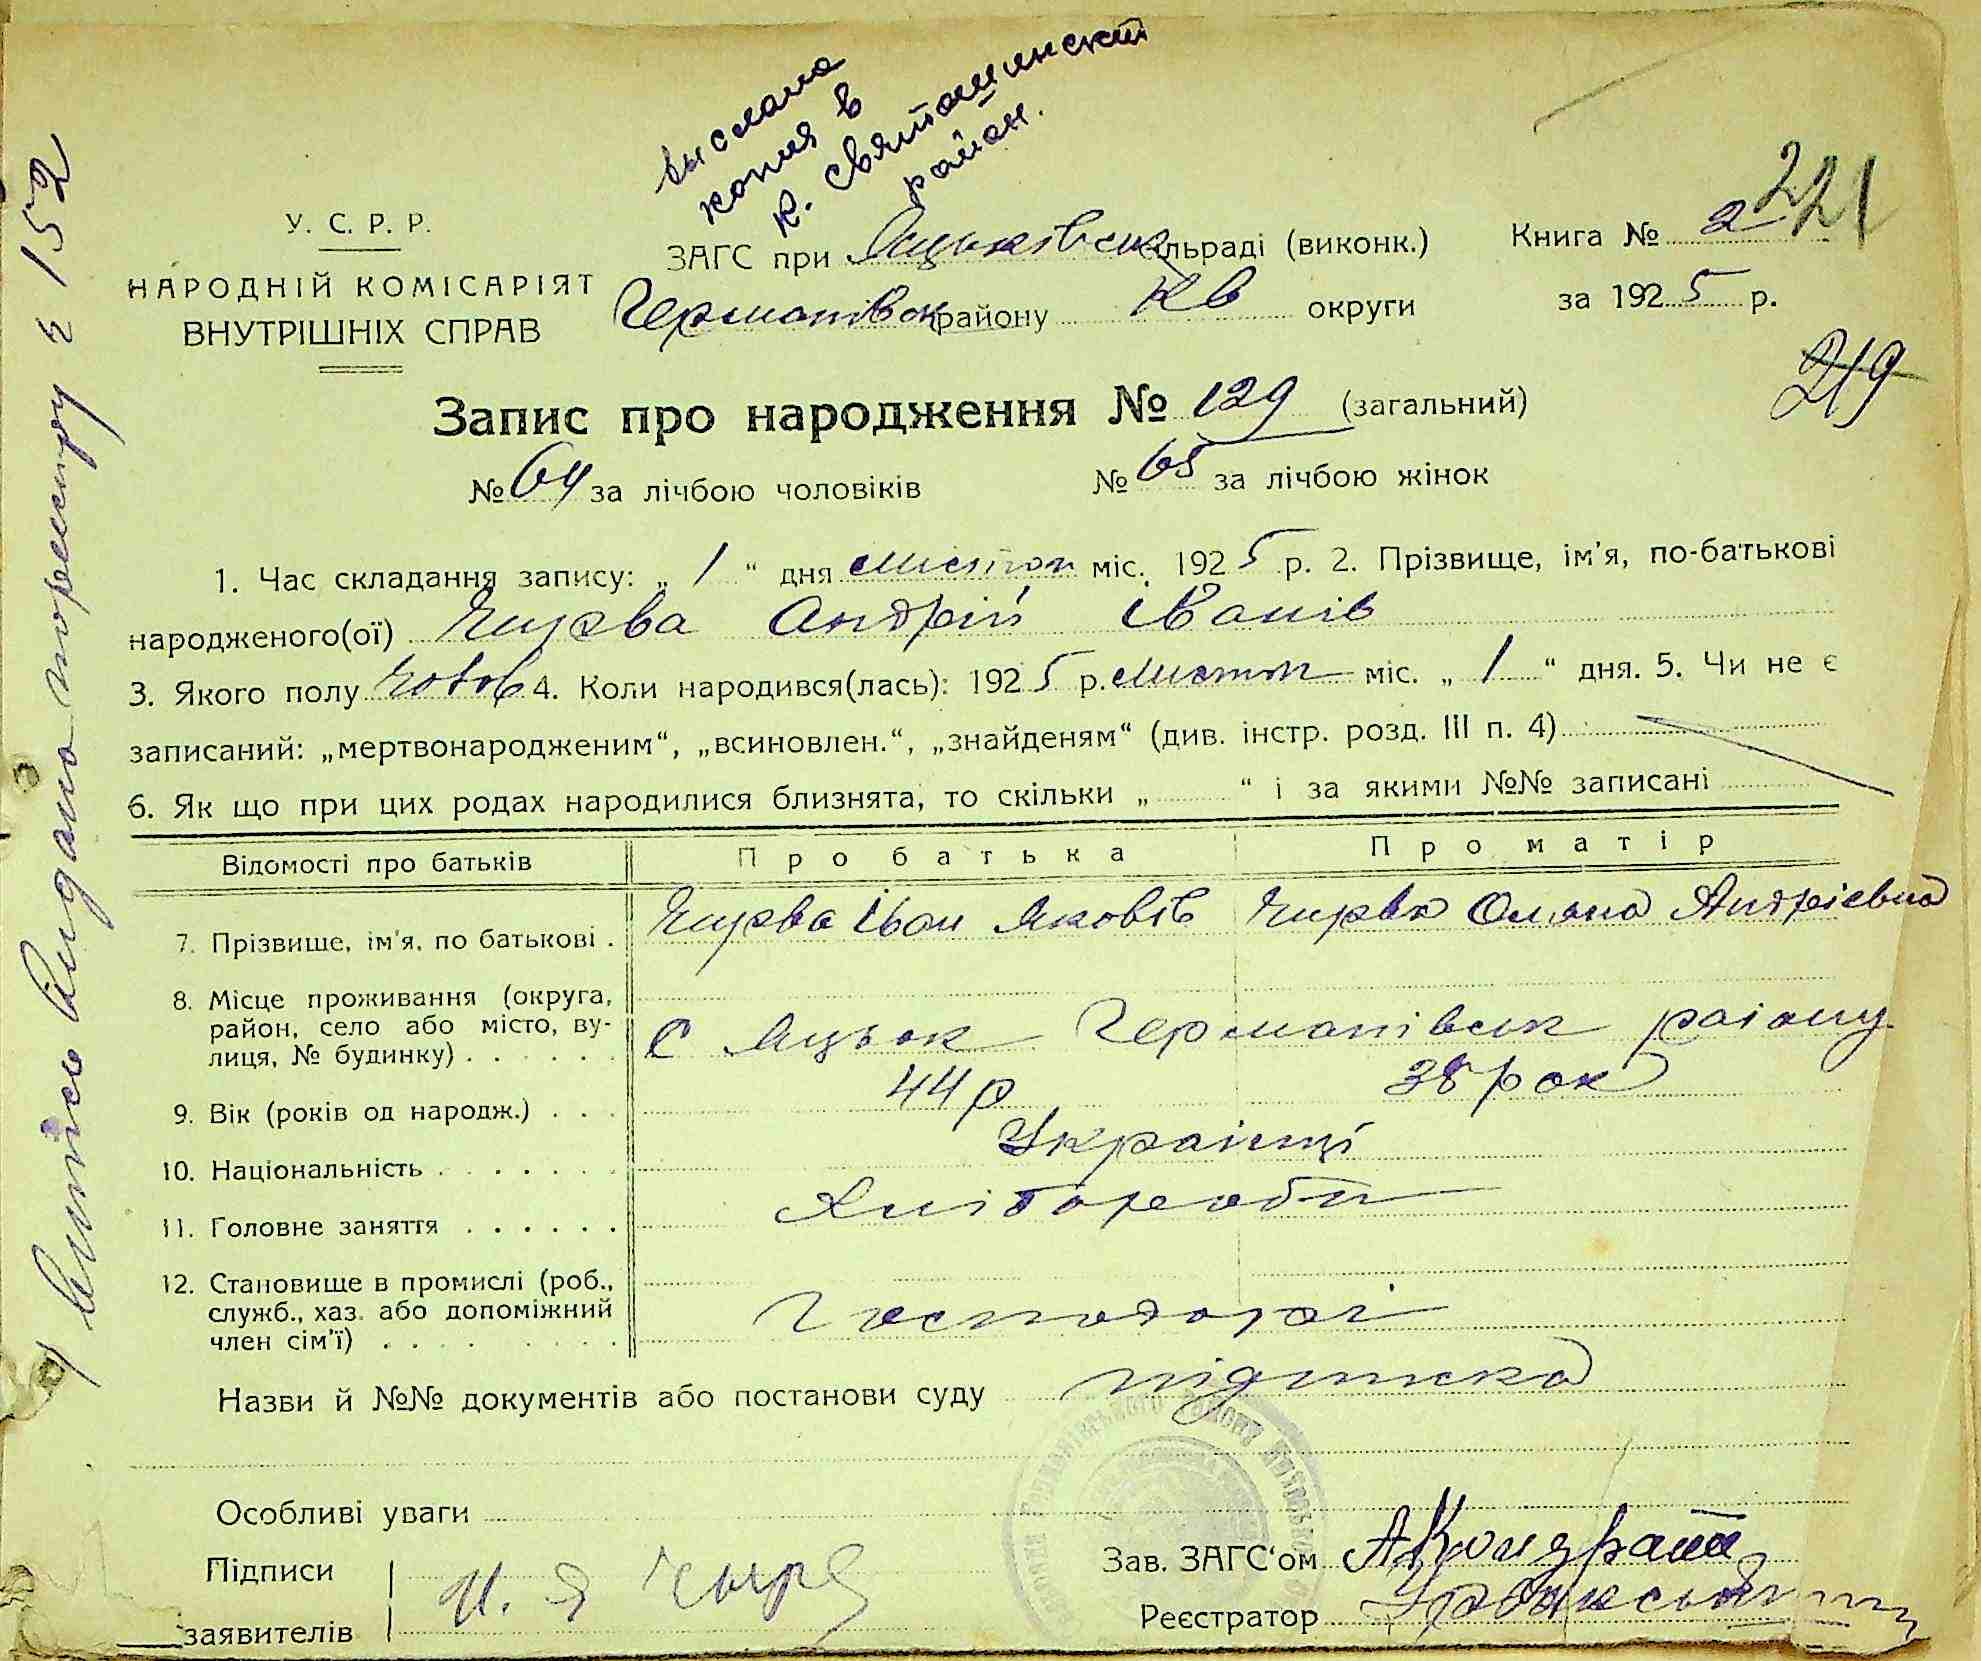 выслана
копия в
к. святошинский
район.
221
У. С. Р. Р.
НАРОДНІЙ КОМІСАРІЯТ
ВНУТРІШНІХ СПРАВ
ЗАГС при Яцьківськ сільраді (виконк.)
Германівськ району Кв округи
Книга № 2
за 1925 р.
219
Запис про народження № 129 (загальний)
№ 64 за лічбою чоловіків № 65 за лічбою жінок
1. Час складання запису: „ 1 “ дня листоп міс. 1925 р. 2. Прізвище, ім'я, по-батькові
народженого(ої) Чирва Андрій Іванів
3. Якого полу чолов 4. Коли народився(лась): 1925 р. листоп міс. „ 1 “ дня. 5. Чи не є
записаний: „мертвонародженим“, „всиновлен.“, „знайденям“ (див. інстр. розд. III п. 4)
6. Як що при цих родах народилися близнята, то скільки „ “ і за якими №№ записані
Відомості про батьків Про батька Про матір
7. Прізвище, ім'я, по батькові . Чирва Іван Яковів Чирва Оляна Андрієвна
8. Місце проживання (округа,
район, село або місто, ву-
лиця, № будинку) . . . . . . С Яцьок Германівськ району
9. Вік (років од народж.) . . . 44 р 38 рок
10. Національність . . . . . . . Українці
11. Головне заняття . . . . . . Хлібороби
12. Становище в промислі (роб.,
служб., хаз. або допоміжний
член сім'ї) . . . . . . . . Господарі
Назви й №№ документів або постанови суду підписка
Особливі уваги
Підписи
заявителів И. Я Чыр
Зав. ЗАГС'ом А Кондрат
Реєстратор
152